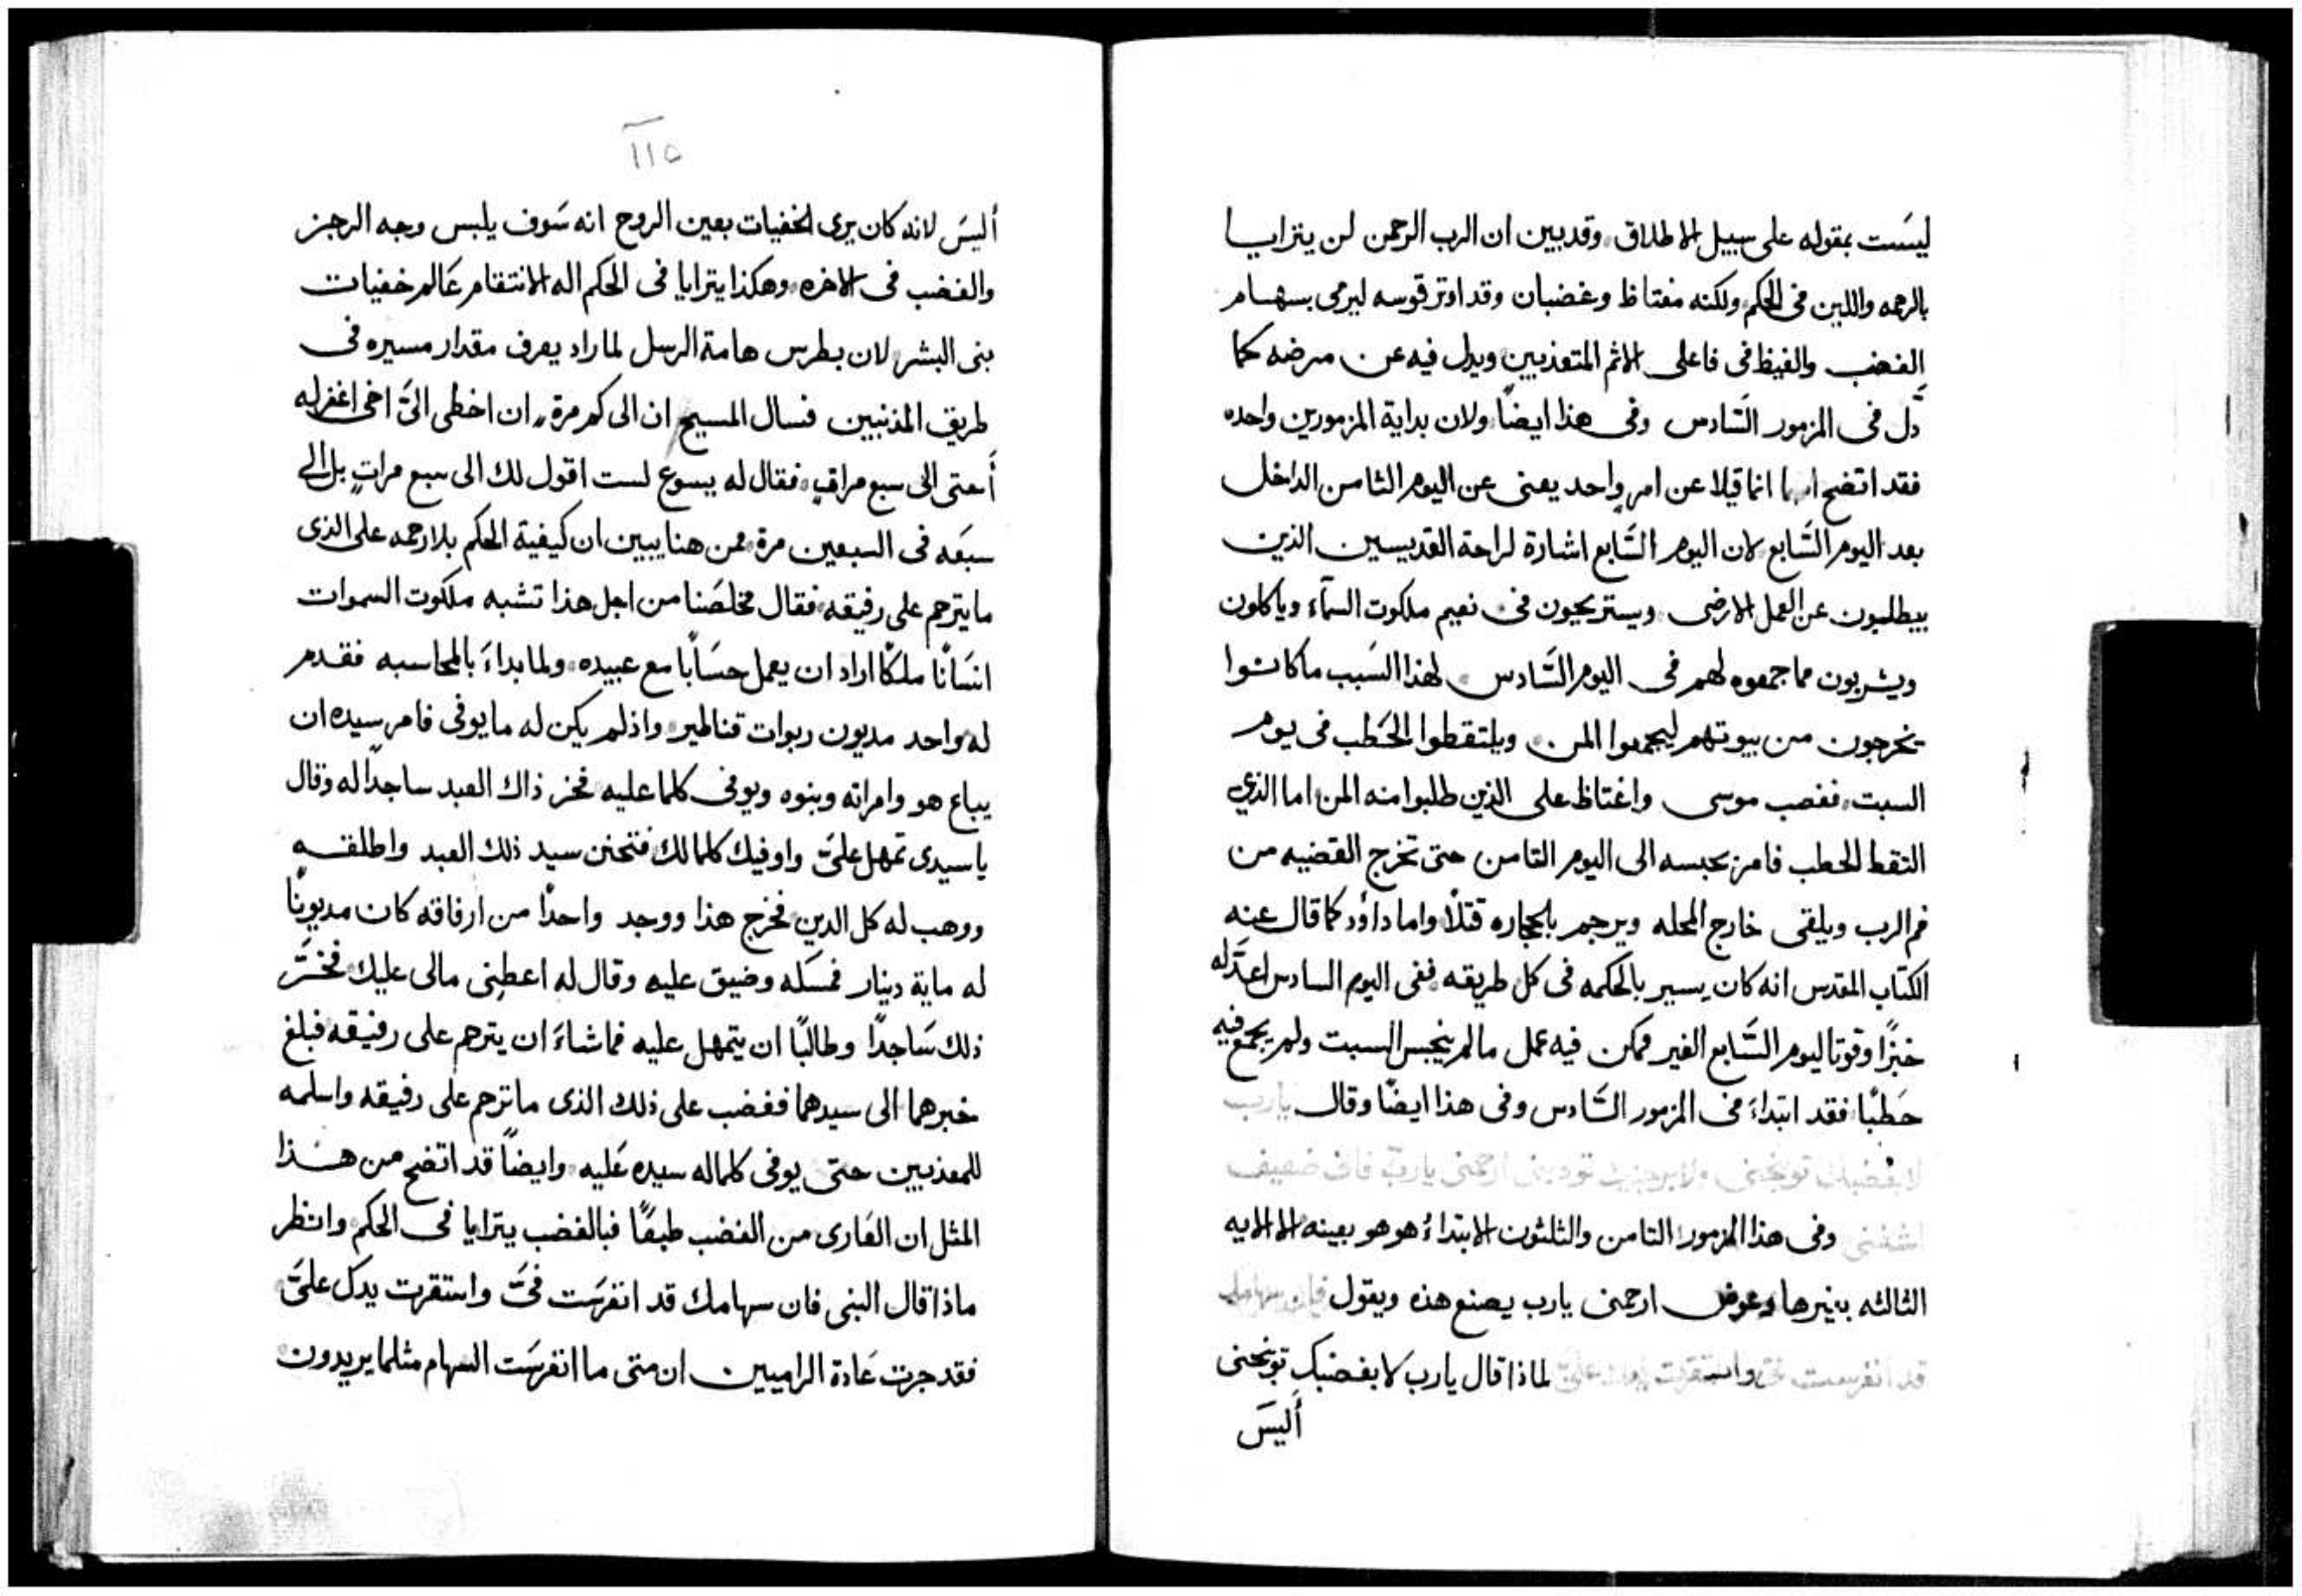 ليسَت بمقوله على سبيل الاطلاق وقد يبين ان الرب الرحمن لن يترايــا
بالرحمه واللين فى الحكم ولكنه مغتاظ وغضبان وقد اوتر قوسه ليرمى بسهــام
الغضب والغيظ فى فاعلى الاثم المتعذبين ويدل فيه عن مرضه كما
دّل فى المزمور السَّادس وفى هذا ايضًا ولان بداية المزمورين واحده
فقد اتضح انهما انما قيلا عن امرٍ واحد يعنى عن اليوم الثامن الداخل
بعد اليوم السَّابع لان اليوم السَّابع اشارة لراحة القديسين الذين
يبطلون عن العمل الارضى ويستريحون فى نعيم ملكوت السمآء وياكلون
ويشربون مما جمعوه لهم فى اليوم السَّادس لهذا السَبب ما كانــوا
يخرجون من بيوتهم ليجمعوا المن ويلتقطوا الحَطب فى يوم
السبت فغصب موسى واغتاظ على الذين طلبوا منه المن اما الذي
التقط الحطب فامر بحبسه الى اليوم الثامن حتى تخرج القضيه من
فم الرب ويلقى خارج المحله ويرجم بالحجاره قتلًا واما داؤد كما قال عنه
الكتاب المقدس انه كان يسير بالحكمه فى كل طريقه ففى اليوم السادس اعدَّ له
خبزًا وقوتا ليوم السَّابع الغير ممكن فيه عمل ما لم ينجس السبت ولم يجمع فيه
حَطبًا فقد ابتداءَ فى المزمور السَّادس وفى هذا ايضًا وقال يارب
لا بغضبك توبخنى ولا برجزك تودبنى ارحمنى يارب فانى ضعيف
اشفنى وفى هذا المزمور الثامن والثلثون الابتداءُ هو هو بعينه الا الايه
الثالثه بغيرها وعوض ارحمنى يارب يصنع هذه ويقول فان سهامك
قد انغرست فىّ واستقرت يدك علىّ لماذا قال يارب لا بغضبك توبخنى
أليسَ
١١٥
أليسَ لانه كان يرى الخفيات بعين الروح انه سَوف يلبس وجه الرجز
والغضب فى الاخره وهكذا يترايا فى الحكم اله الانتقام عَالم خفيات
بنى البشر لان بطرس هامة الرسل لما راد يعرف مقدار مسيره فى
طريق المذنبين فسال المسيح ان الى كم مرة ان اخطى الىَّ اخى اغفر له
أحتى الى سبع مراتٍ فقال له يسوع لست اقول لك الى سبع مراتٍ بل الى
سبعَه فى السبعين مرة فمن هنا يبين ان كيفية الحكم بلا رحمه على الذى
ما يترحم على رفيقه فقال مخلصَنا من اجل هذا تشبه ملكوت السموات
انسَانًا ملكًا اراد ان يعمل حسَابًا مع عبيده ولما بداءَ بالمحاسبه فقدم
له واحد مديون ربوات قناطير واذ لم يكن له ما يوفى فامر سيده ان
يباع هو وامراته وبنوه ويوفى كلما عليه فخر ذاك العبد ساجدًا له وقال
يا سيدى تمهل علىَّ واوفيك كلما لك فتحنن سيد ذلك العبد واطلقــه
ووهب له كل الدين فخرج هذا ووجد واحدًا من ارفاقه كان مديونًا
له ماية دينار فمسَكه وضيق عليه وقال له اعطِنى مالى عليك فخــرَّ
ذلك سَاجدًا وطالبًا ان يتمهل عليه فما شاءَ ان يترحم على رفيقه فبلغ
خبرهما الى سيدهما فغضب على ذلك الذى ما ترحم على رفيقه واسلمه
للمعذبين حتى يوفى كلما له سيده عَليه وايضًا قد اتضح من هــذا
المثل ان العَارى من الغضب طبعًا فبالغضب يترايا فى الحكم وانظر
ماذا قال النبى فان سهامك قد انغرسَت فىَّ واستقرت يدك علىَّ
فقد جرت عَادة الراميين ان متى ما انغرسَت السهام مثلما يريدون